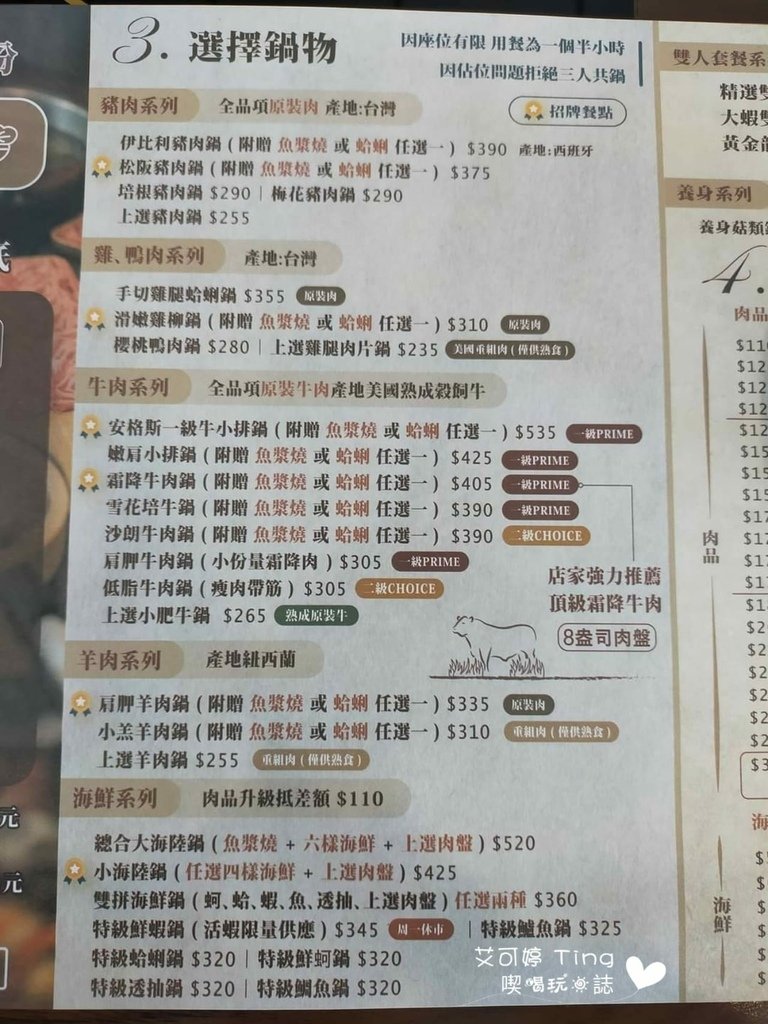 3. 選擇鍋物
因座位有限 用餐為一個半小時
因佔位問題拒絕三人共鍋
豬肉系列 全品項原裝肉 產地:台灣
招牌餐點
伊比利豬肉鍋 ( 附贈 魚漿燒 或 蛤蜊 任選一 ) $390 產地:西班牙
松阪豬肉鍋 ( 附贈 魚漿燒 或 蛤蜊 任選一 ) $375
培根豬肉鍋 $290 | 梅花豬肉鍋 $290
上選豬肉鍋 $255
雞、鴨肉系列 產地:台灣
手切雞腿蛤蜊鍋 $355 原裝肉
滑嫩雞柳鍋 ( 附贈 魚漿燒 或 蛤蜊 任選一 ) $310 原裝肉
櫻桃鴨肉鍋 $280 | 上選雞腿肉片鍋 $235 美國重組肉 ( 僅供熟食 )
牛肉系列 全品項原裝牛肉產地美國熟成穀飼牛
安格斯一級牛小排鍋 ( 附贈 魚漿燒 或 蛤蜊 任選一 ) $535 一級PRIME
嫩肩小排鍋 ( 附贈 魚漿燒 或 蛤蜊 任選一 ) $425 一級PRIME
霜降牛肉鍋 ( 附贈 魚漿燒 或 蛤蜊 任選一 ) $405 一級PRIME
雪花培牛鍋 ( 附贈 魚漿燒 或 蛤蜊 任選一 ) $390 一級PRIME
沙朗牛肉鍋 ( 附贈 魚漿燒 或 蛤蜊 任選一 ) $390 二級CHOICE
肩胛牛肉鍋 ( 小份量霜降肉 ) $305 一級PRIME
低脂牛肉鍋 ( 瘦肉帶筋 ) $305 二級CHOICE
上選小肥牛鍋 $265 熟成原裝牛
店家強力推薦
頂級霜降牛肉
8盎司肉盤
羊肉系列 產地紐西蘭
肩胛羊肉鍋 ( 附贈 魚漿燒 或 蛤蜊 任選一 ) $335 原裝肉
小羔羊肉鍋 ( 附贈 魚漿燒 或 蛤蜊 任選一 ) $310 重組肉 ( 僅供熟食 )
上選羊肉鍋 $255 重組肉 ( 僅供熟食 )
海鮮系列 肉品升級抵差額 $110
總合大海陸鍋 ( 魚漿燒 + 六樣海鮮 + 上選肉盤 ) $520
小海陸鍋 ( 任選四樣海鮮 + 上選肉盤 ) $425
雙拼海鮮鍋 ( 蚵、蛤、蝦、魚、透抽、上選肉盤 ) 任選兩種 $360
特級鮮蝦鍋 ( 活蝦限量供應 ) $345 周一休市 | 特級鱸魚鍋 $325
特級蛤蜊鍋 $320 | 特級鮮蚵鍋 $320
特級透抽鍋 $320 | 特級鯛魚鍋 $320
艾可婷 Ting
喫喝玩樂誌
元
元
雙人套餐系
精選雙
大蝦雙
黃金龍
養身系列
養身菇類鍋
4.
肉品
肉品
海鮮